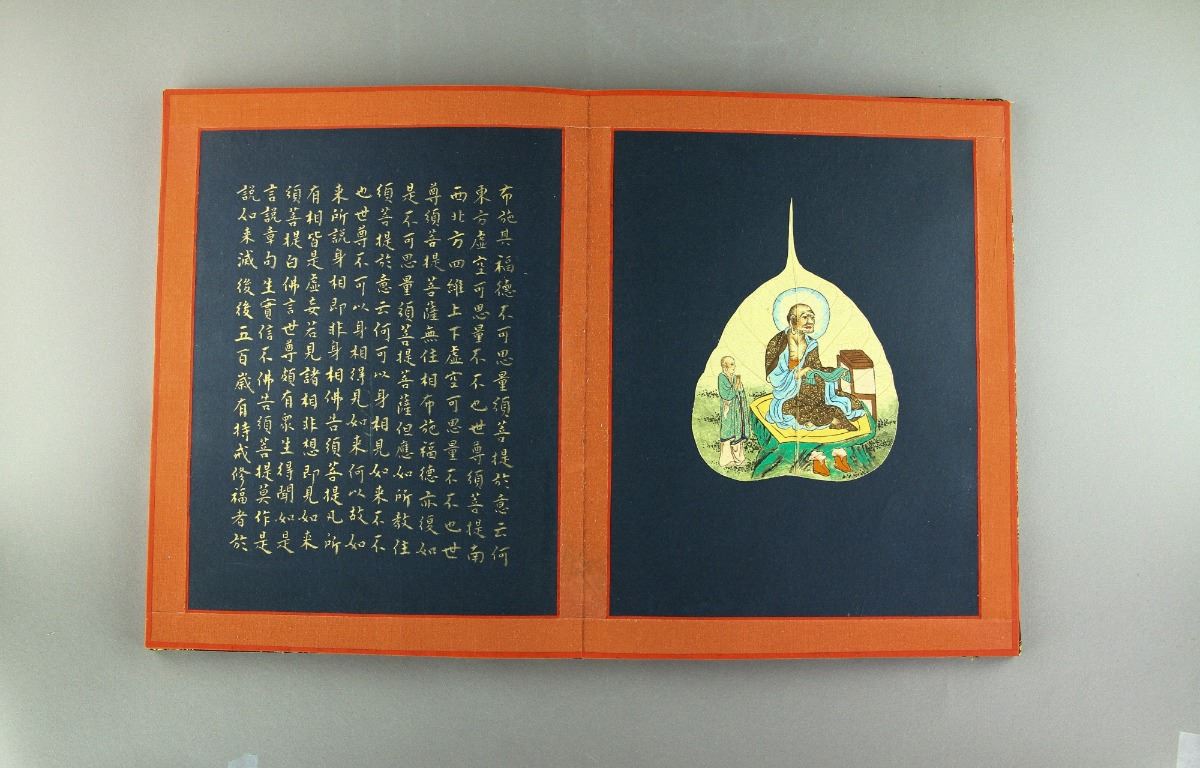 布施其福德不可思量須菩提於意云何
東方虛空可思量不不也世尊須菩提南
西北方四維上下虛空可思量不不也世
尊須菩提菩薩無住相布施福德亦復如
是不可思量須菩提菩薩但應如所教住
須菩提於意云何可以身相見如来不不
也世尊不可以身相得見如来何以故如
来所說身相即非身相佛告須菩提凡所
有相皆是虛妄若見諸相非想即見如来
須菩提白佛言世尊頗有衆生得聞如是
言說章句生實信不佛告須菩提莫作是
說如来滅後後五百歲有持戒修福者於